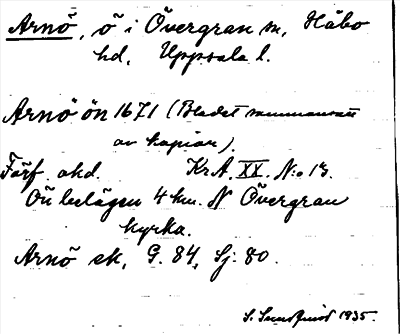 Arnö, ö i Övergran sn, Håbo
hd, Uppsala l.
Arnö ön 1671 (Bladet sammansatt
av kopior).
Förf. okd. KrA. XX. N:o 13.
Ön belägen 4 km. N Övergran
kyrka.
Arnö ek, G. 84, Sj. 80.
S. Sundqvist 1935.